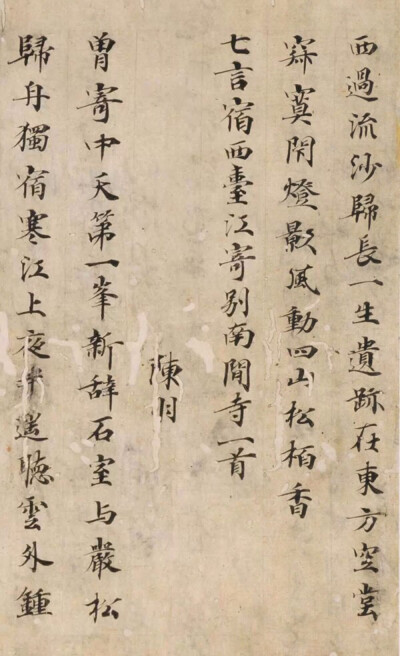 西過流沙歸長一生遺跡在東方空堂
寂寞閇燈影風動四山松栢香
七言宿西臺江寄別南閒寺一首
陳羽
曽寄中天第一峯新辞石室与巖松
歸舟獨宿寒江上夜半遥聴雲外鍾